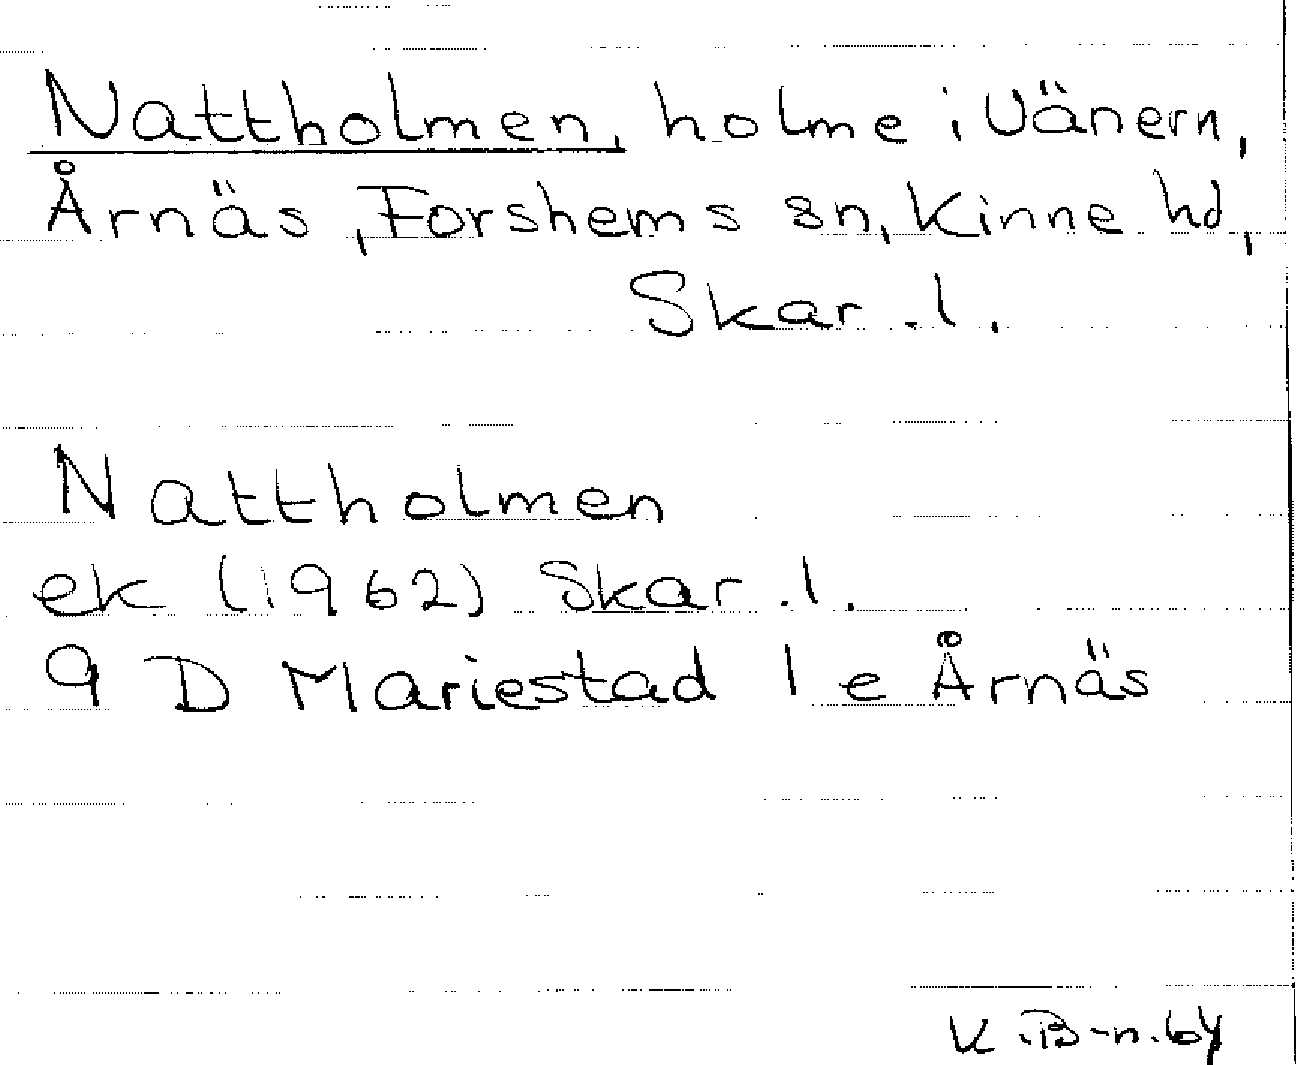 Nattholmen, holme i Vänern,
Årnäs, Forshems sn, Kinne hd,
Skar. l.
Nattholmen
ek (1962) Skar. l.
9 D Mariestad 1 e Årnäs
K. B-n.